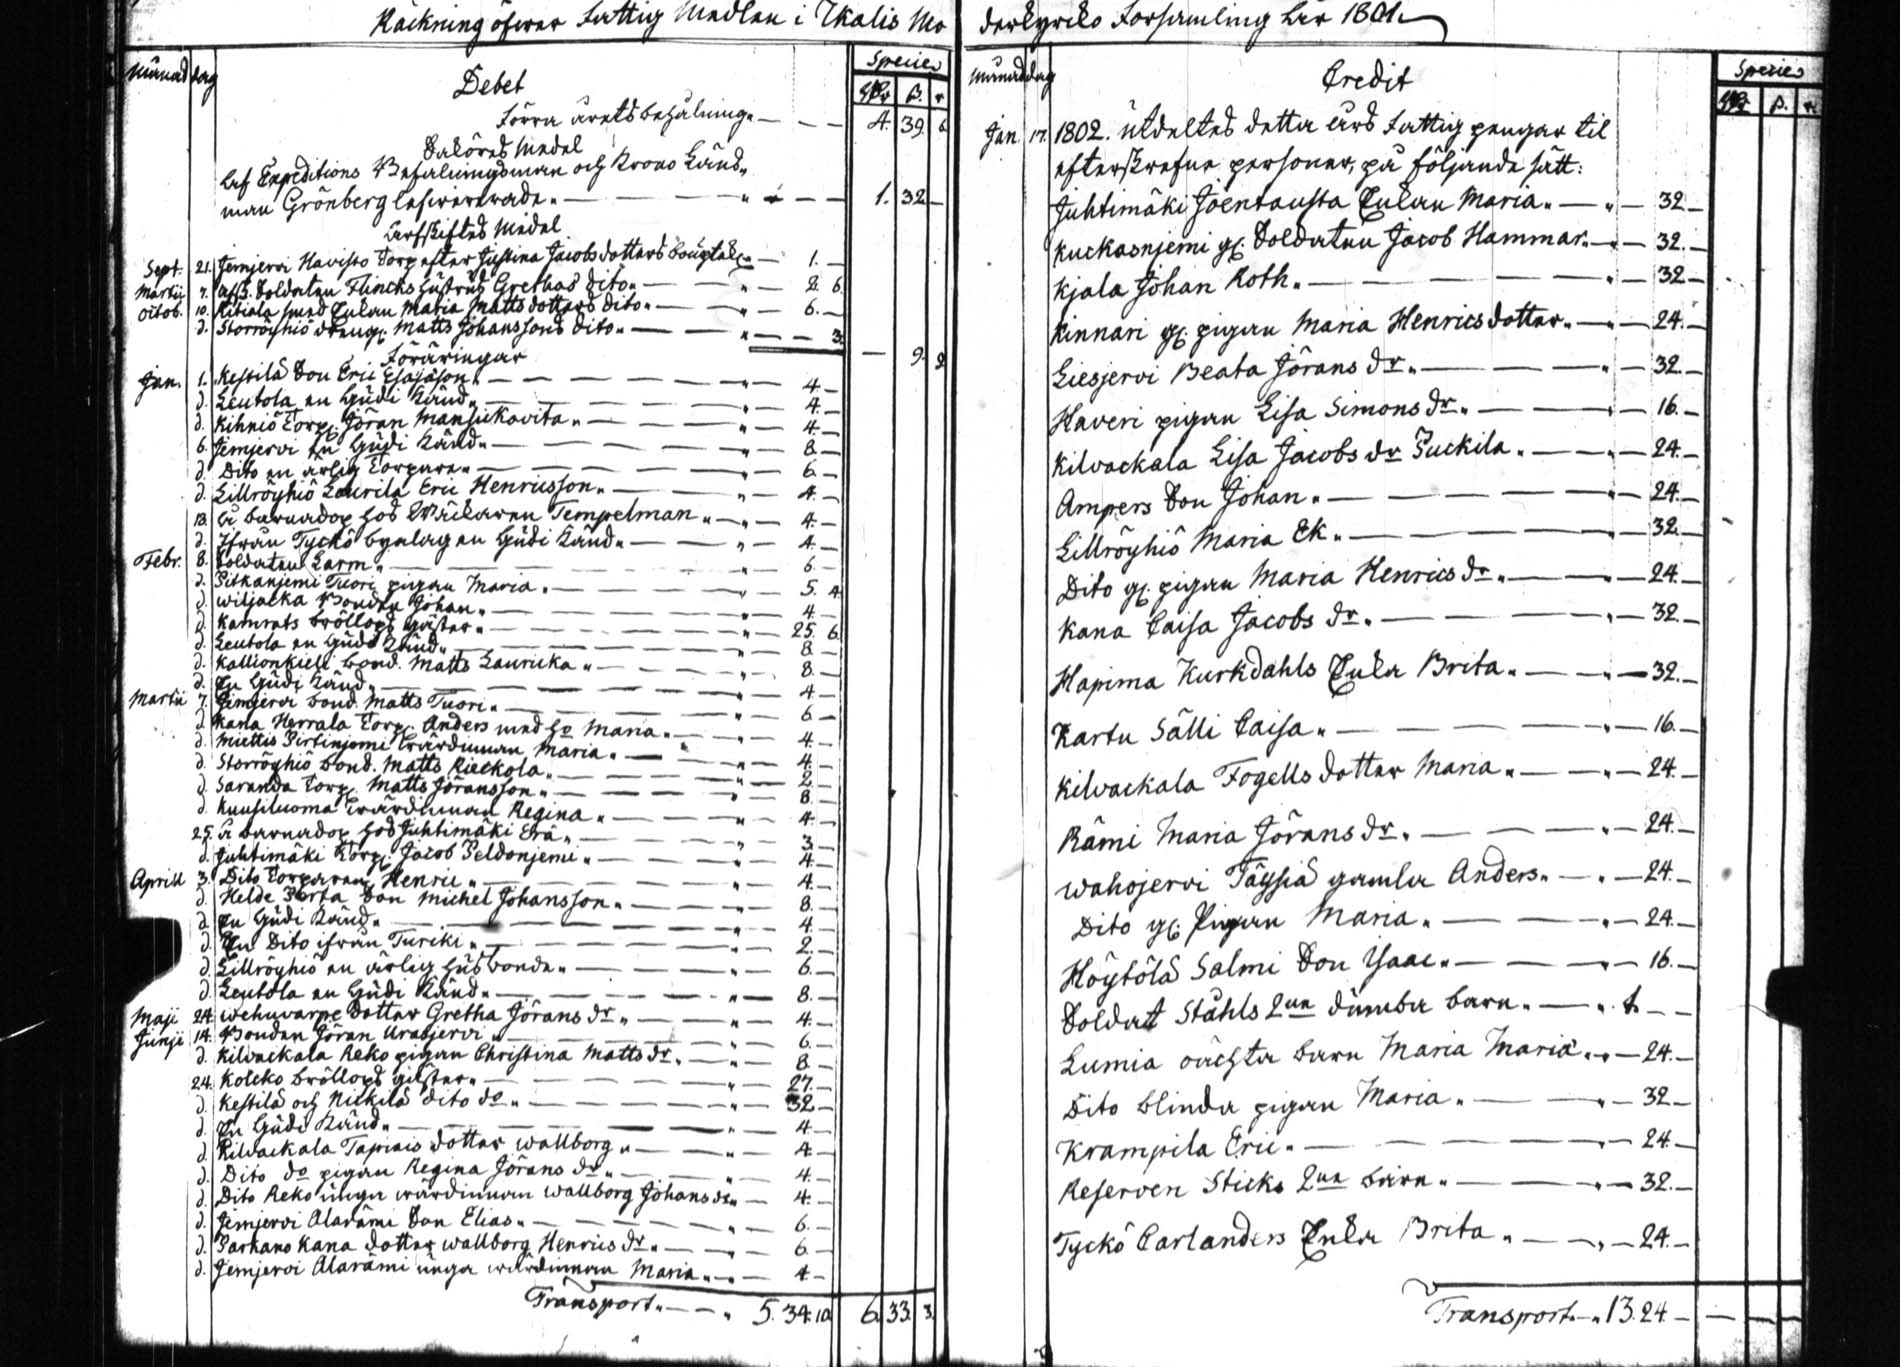 Räckning öfwer Fattig Medlen i Ikalis Mo
Månad dag Debet Species
Rdr ß. r.
Förra årets behålning. 4. 39. 6.
Saköres Medel
Af Expeditions Befalningsman och Krono Länds-
man Grönberg lefwererade. 1. 32.
Arfskiftes Medel
Sept. 21. Jemjervi Havisto Torp efter Justina Jacobsdotters 1.
Martii 7. afsk. Soldaten Flincks hustrus Grethas dito. 2. 6.
Octob. 10. Kitiala Enkan Maria Mattsdotters dito. 6.
d. Storröyhiö dreng. Matts Johanssons dito. 3.
9. 2
Föräringar
Jan. 1. Kestilä Son Eric Esajason. 4.
d. Leutola en Gudi Känd. 4.
d. Kihniö Torp. Jöran Mansickavita. 4.
6. Jemjervi en Gudi Känd. 8.
d. Dito en ärlig Torpare. 6.
d. Lillröyhiö Laurila Eric Henricsson. 4.
13. å barnadop hos Tempelman 4.
d. Ifrån Tyckö bylag en Gudi Känd. 4.
Febr. 8. Soldaten Larm. 6.
d. Pitkänjemi Tuori pigan Maria. 5. 4
d. Wiljacka Bonden Johan. 4.
d. Kamrats bröllops gäster. 25. 6
d. Leutola en Gudi Känd. 8.
d. Kallionkieli bond. Matts Lauricka 8.
d. En Gudi Känd. 4
Martii 7. Jemjervi bond. Matts Tuori. 6.
d. Kana Herrala Torp. Anders med ho Maria. 4.
d. Miettis Pirtinjemi wärdinnan Maria. 4.
d. Storröyhiö bond. Matts Rieckola. 2.
d. Saranda Torp. Matts Jöransson. 8.
d. Kuusiluoma wärdinnan Regina 4.
25. å barnadop hos Juhtimäki Erä. 3
d. Juhtimäki Torp. Jacob Peldonjemi. 4
Aprill 3. Dito Torparen Henric 4.
d. Helde Perta Son Michel Johansson. 8.
d. En Gudi Känd. 4.
d. En Dito ifrån Turiki 2.
d. Lillröyhiö en ärlig husbonde. 6.
d. Leutola en Gudi Känd. 8.
Maji 24. Wehuvarpe Dotter Gretha Jörans dr. 4.
Junji 14. Bonden Jöran Urasjervi 6.
d. Kilvackala Reko pigan Christina Matts dr. 8.
24. Kolcko bröllops gäster. 27.
d. Kestilä och Nickilä dito do. 32
d. En Gudi Känd. 4
d. Kilvackala Tapiais dotter Wallborg 4
d. Dito do pigan Regina Jörans dr. 4.
d. Dito Reko unga wärdinnan Wallborg Johans dr. 4.
d. Jemjervi Alarämi Son Elias. 6.
d. Parkano Kana dotter Wallborg Henrics dr. 6.
d. Jemjervi Alarämi unga wärdinnan Maria 4
Transport. 5. 34. 10. 6. 33. 3.
derkyrko Församling År 1801.
Månad dag Credit Species
Rdr ß. r.
Jan. 17. 1802. utdeltes detta års Fattig pengar til
efterskrefne personer, på följande sätt:
Juhtimäki Joentausta Enkan Maria. 32.
Kuckasnjemi gl. Soldaten Jacob Hammar. 32.
Kjala Johan Roth. 32
Kinnari gl. pigan Maria Henricsdotter. 24.
Liesjervi Beata Jörans dr. 32.
Haveri pigan Lisa Simons dr. 16.
Kilvackala Lisa Jacobs dr Puckila. 24.
Ampers Son Johan. 24.
Lillröyhiö Maria Ek. 32.
Dito gl. pigan Maria Henrics dr. 24.
Kana Caisa Jacobs dr. 32.
Hapima Kurkdahls Enka Brita. 32.
Kartu Sälli Caisa. 16.
Kilvackala Fogells dotter Maria 24.
Rämi Maria Jörans dr. 24.
Wahojervi Täysiä gamla Anders. 24.
Dito gl. Pigan Maria. 24.
Höytölä Salmi Son Isaac. 16.
Soldat Ståhls 2ne dumba barn. 1.
Lumia oächta barn Maria Maria 24.
Dito blinda pigan Maria. 32
Krampila Eric. 24
Reserven Sticks 2ne barn. 32.
Tyckö Carlanders Enka Brita. 24.
Transport. 13. 24.